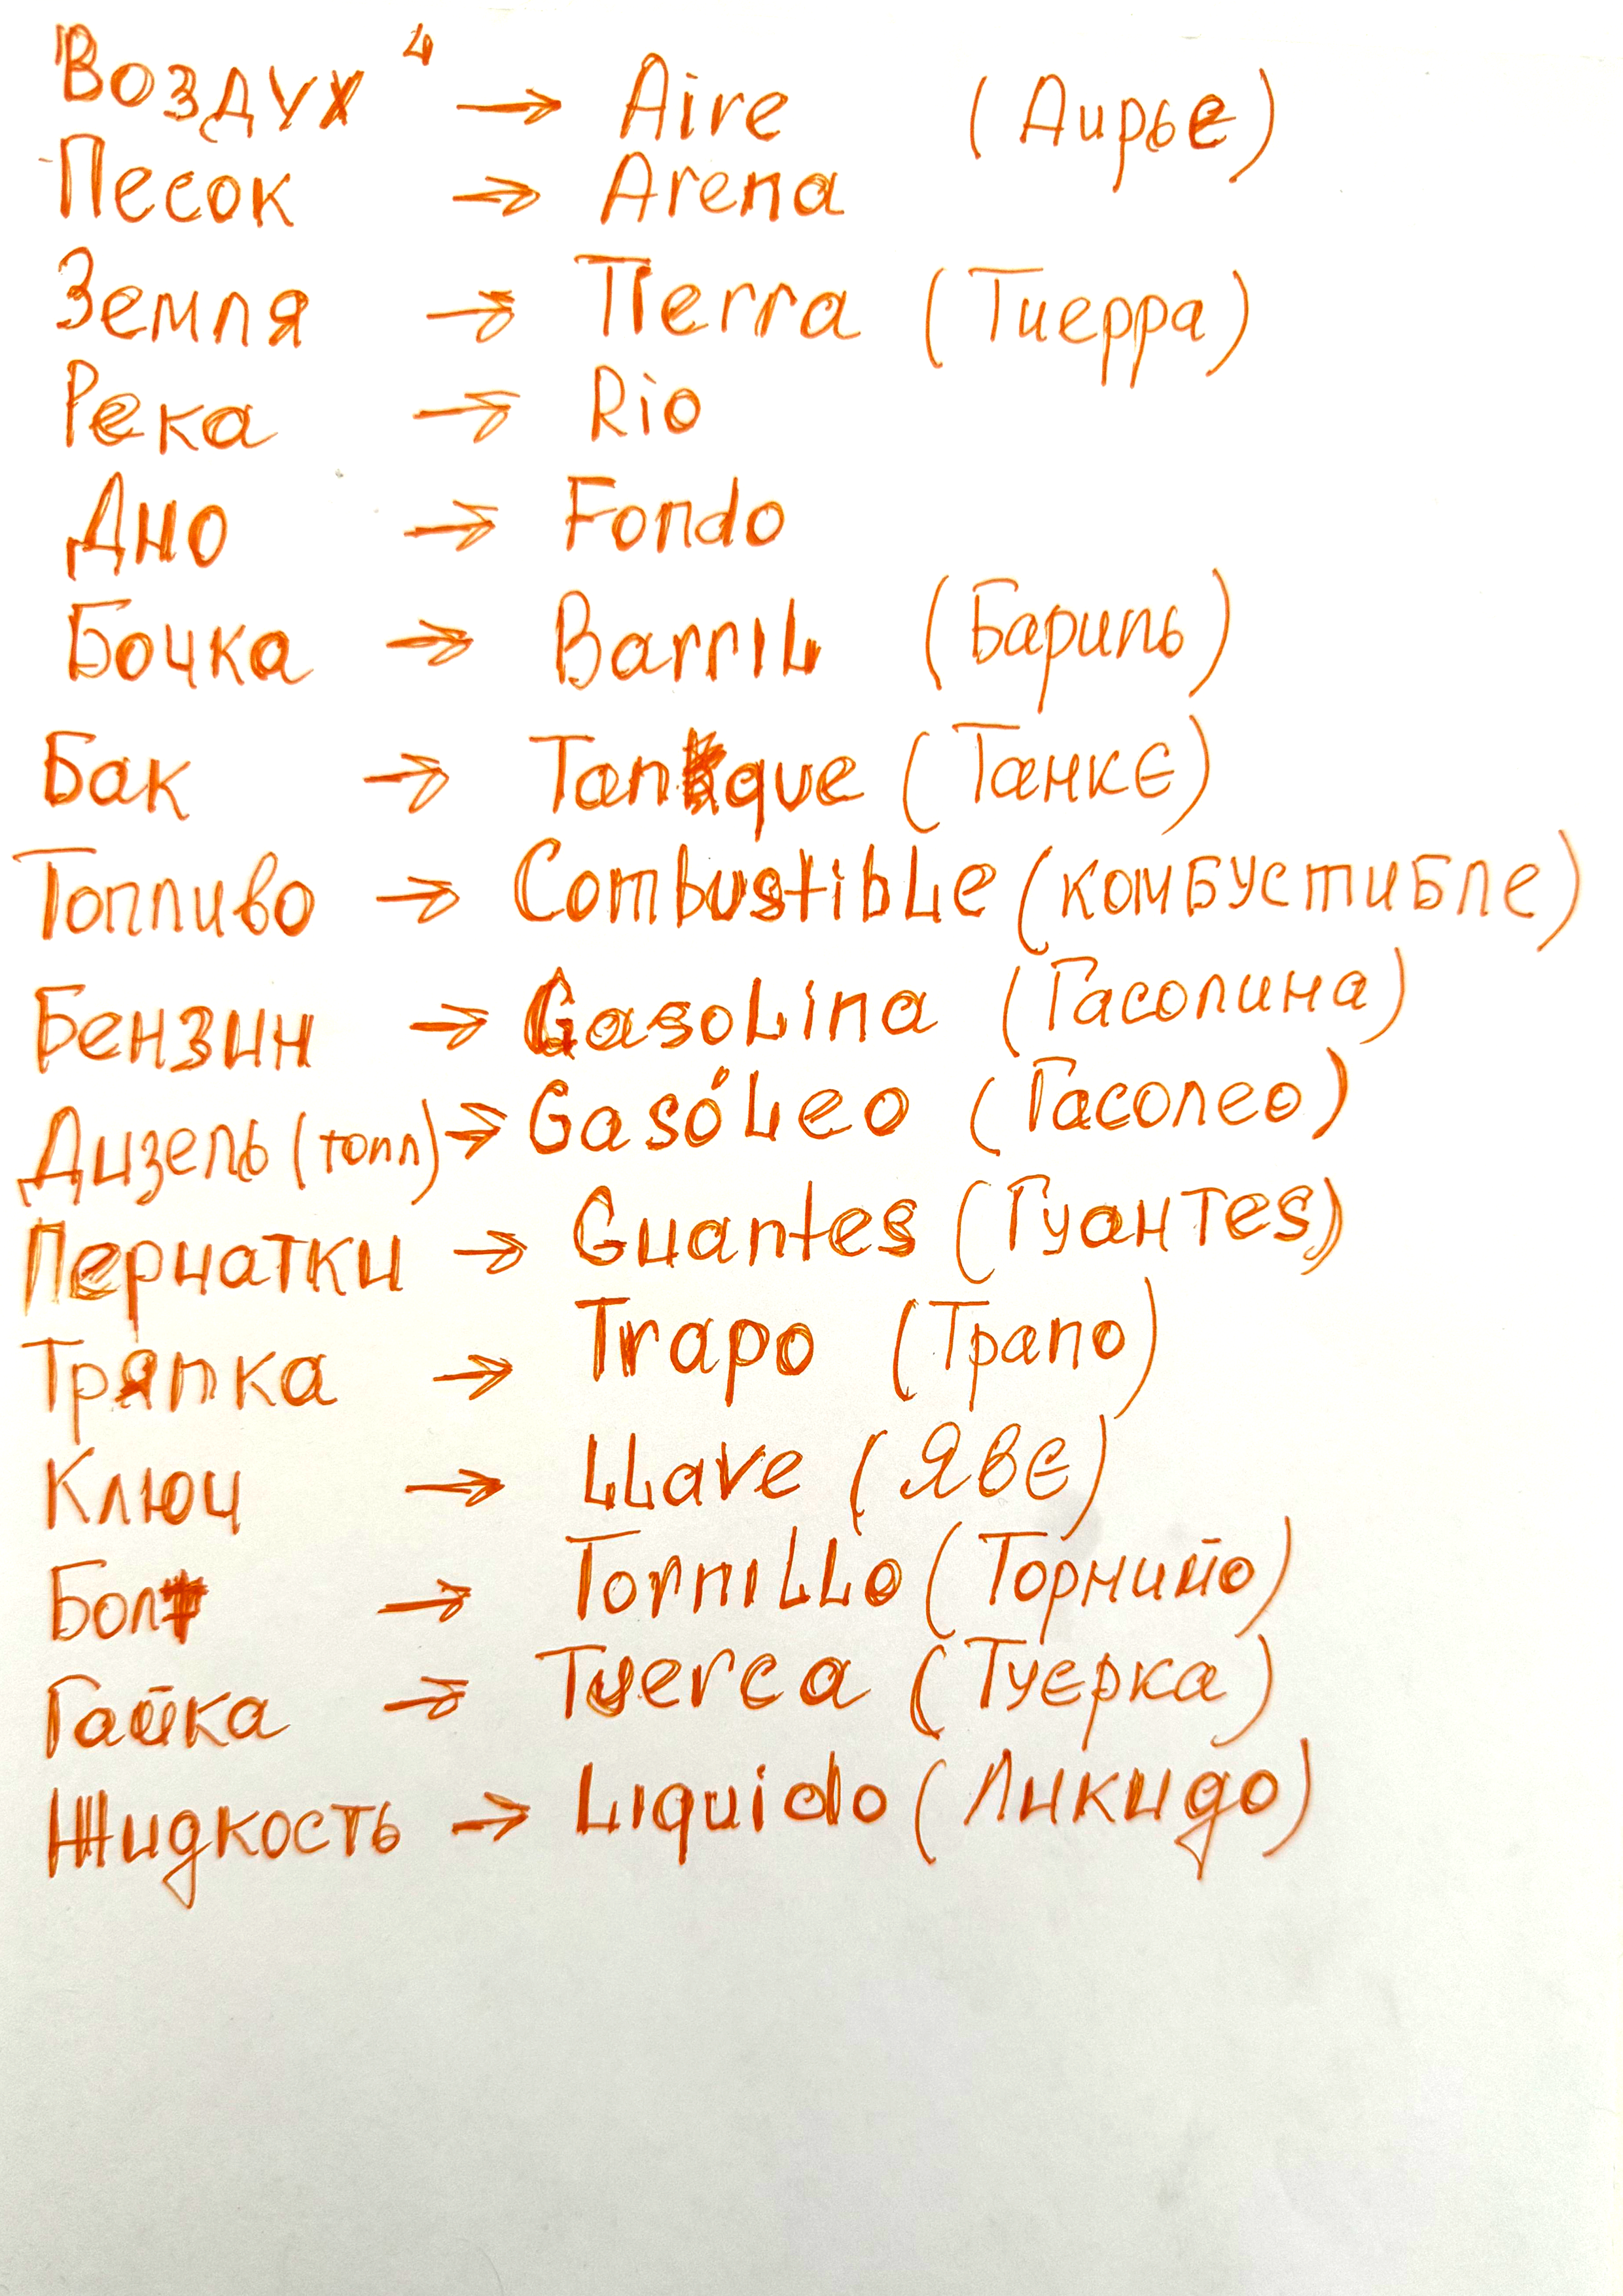 Воздух 4 → Aire (Аирье)
Песок → Arena
Земля → Tierra (Тиерра)
Река → Rio
Дно → Fondo
Бочка → Barril (Бариль)
Бак → Tanque (Танкє)
Топливо → Combustible (комбустибле)
Бензин → Gasolina (Гасолина)
Дизель (топл) → Gasóleo (Гасолео)
Перчатки → Guantes (Гуантеs)
Тряпка → Trapo (Трапо)
Ключ → Llave (Явє)
Болт → Tornillo (Торнийо)
Гайка → Tuerca (Туєрка)
Жидкость → Liquido (Ликидо)